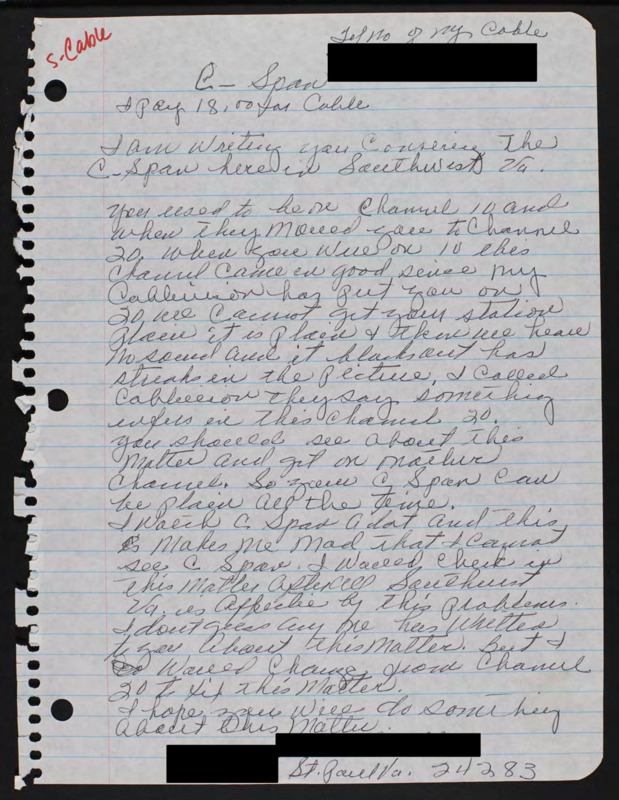 S-Cable
Tel No of my Cable
C-Span
I Pay 18.00 for Cable
I am writing you Consering The
C-Span here in Southwest Va.
you used to be on Channel 10 and
when they Moved you to Channel
20. when you were on 10 this
Channel Came in good since my
Cablevision has put you on
20 we Cannot get your station
plain it is plain & then we hear
no sound and it blacks out has
streaks in the picture, I Called
Cablevision they say something
in this Channel 20.
you should see about this
Matter and get on another
Channel. So your C Span Can
be plain all the time.
I watch C Span a lot and this
is Makes me mad that I Cannot
see C Span. I would Check in
this Matter Southwest
Va. is by this problems.
I dont guess any one has written
to you About this Matter. but I
would Change from Channel
20 to fix this Matter.
I hope you will do something
About this Matter.
St. Paul Va. 24283